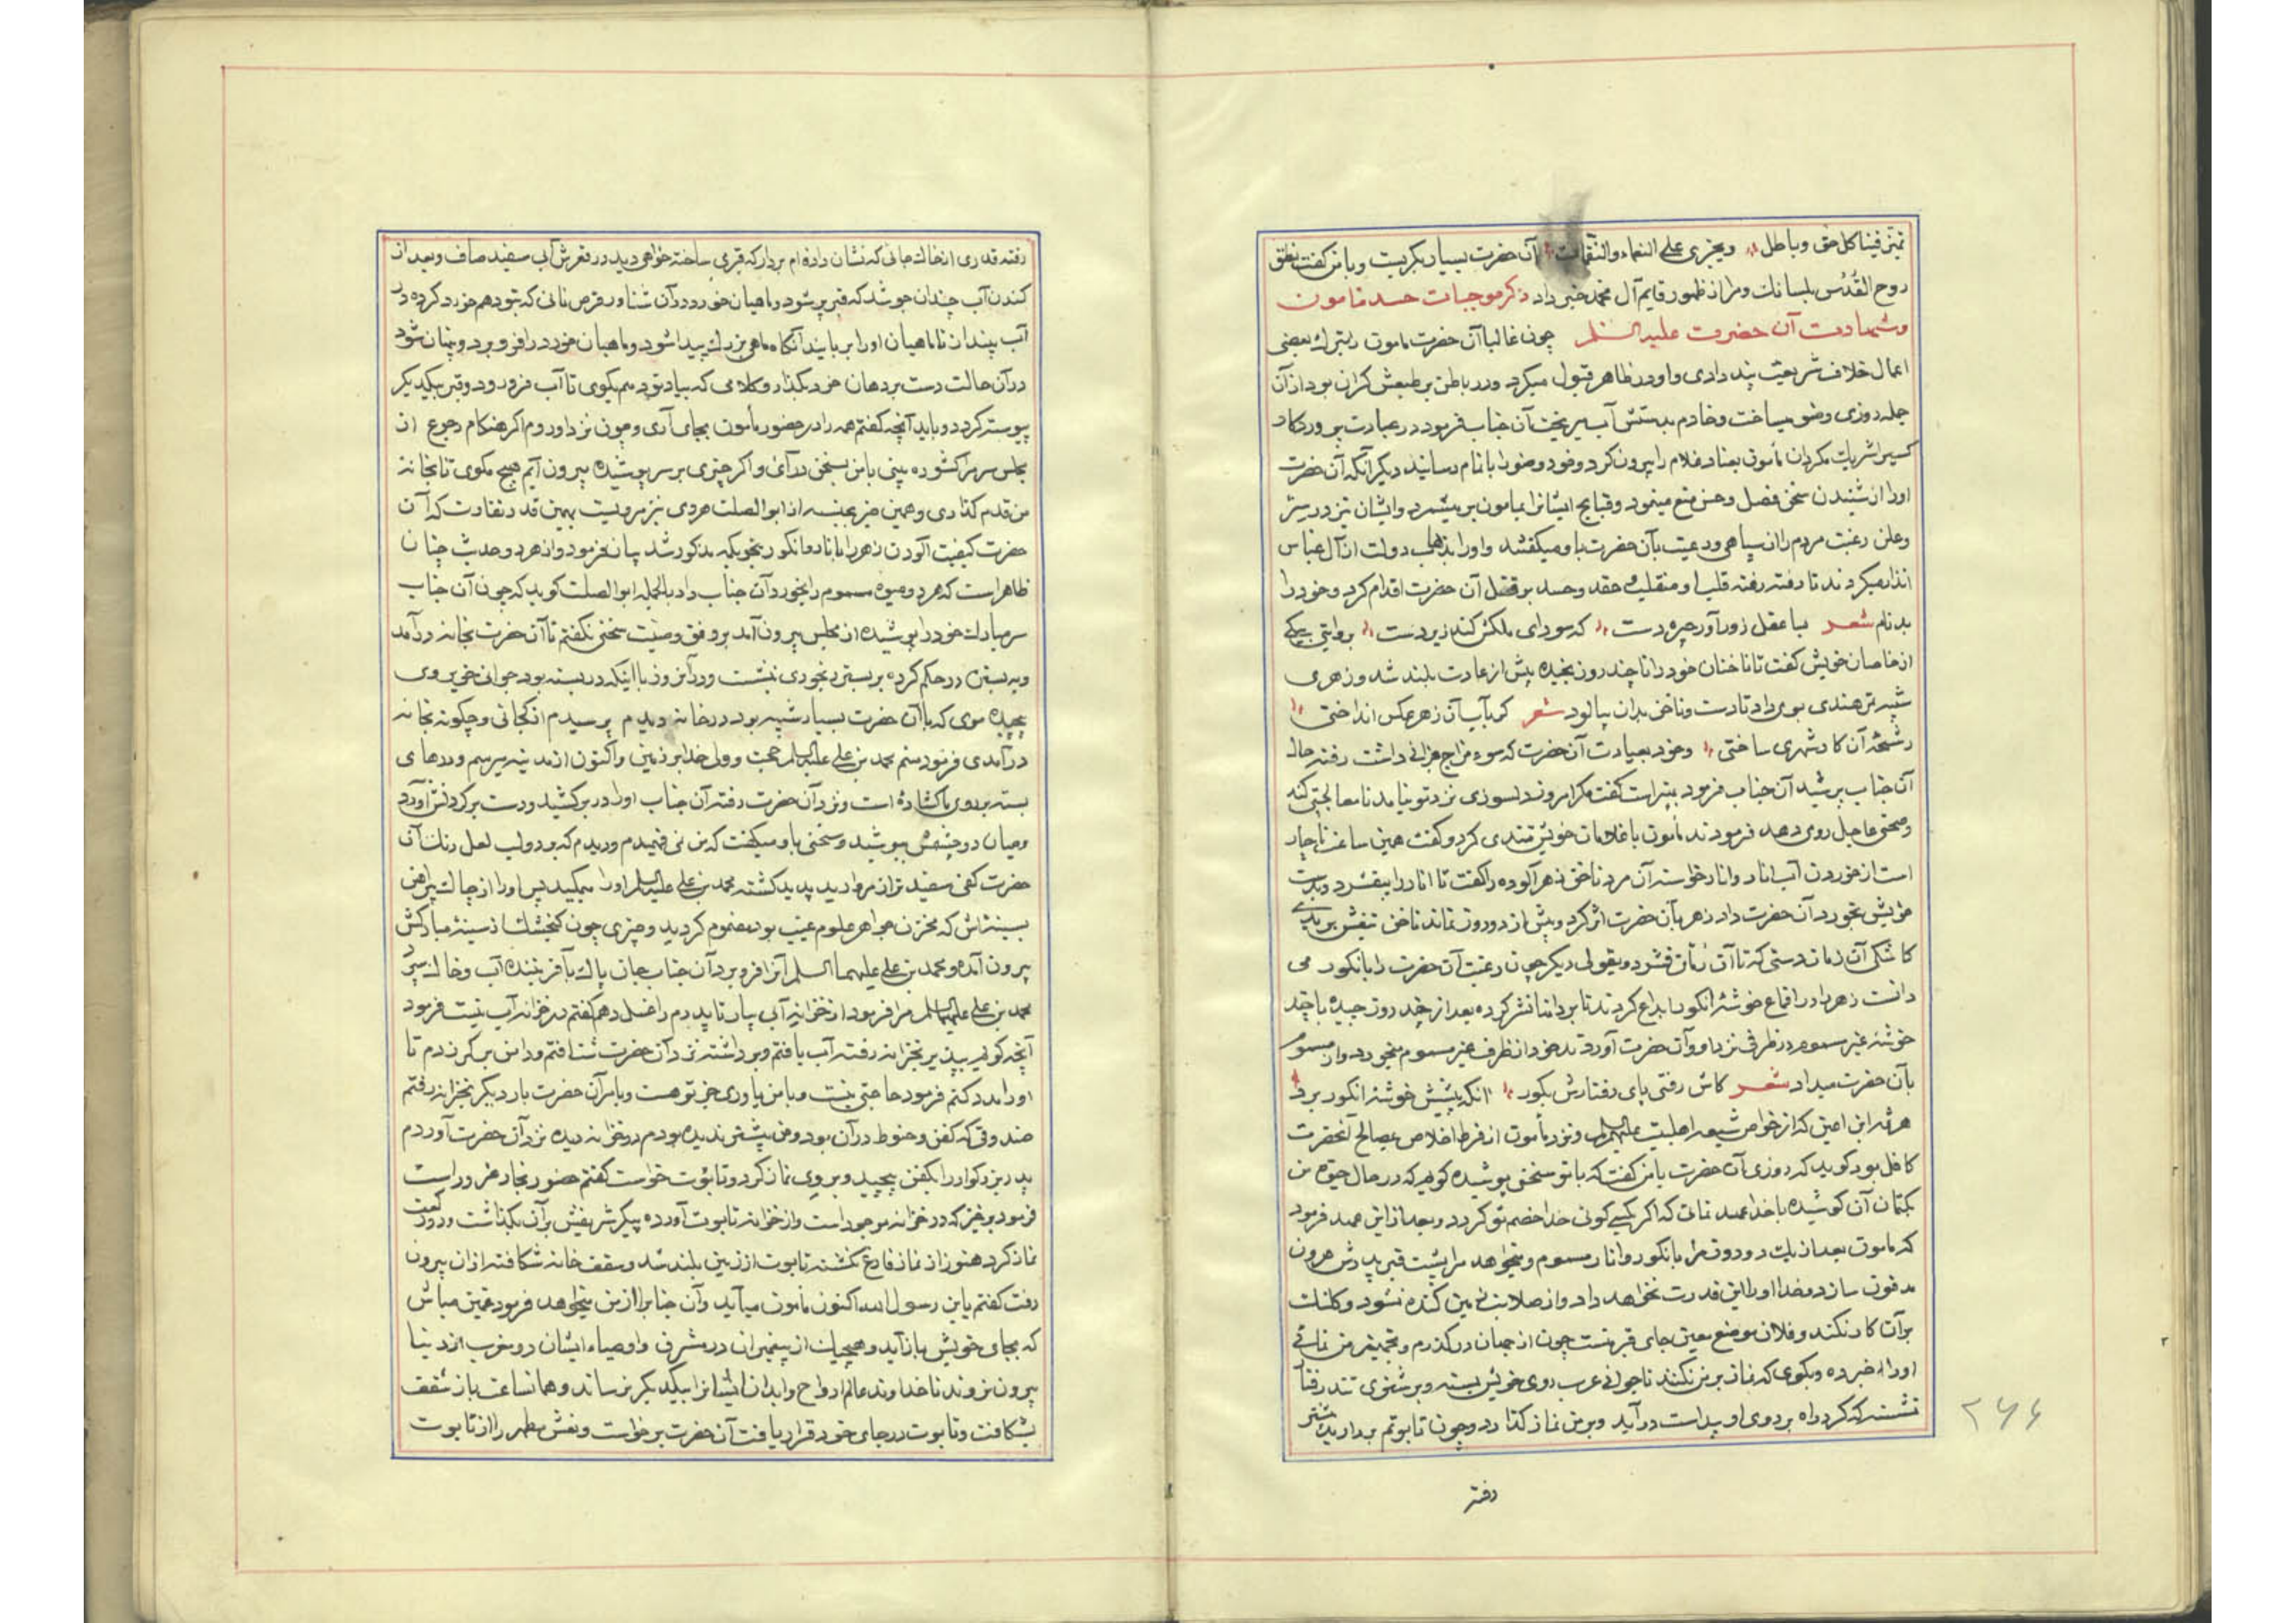 تمیّز فینا کل حق و باطل ویجزی علی النعماء والنقمات آن حضرت بسیار بکریست و با من کفت نطق
روح القُدُس بلسانك ومرا از ظهور قایم آل محمد خبر داد ذکر موجبات حسد مامون
وشهادت آن حضرت علیه السلم چون غالبا آن حضرت مامون ربترك بعضی
اعمال خلاف شریعت پند دادی واو در ظاهر قبول میکرد ودر باطن بر طبعش کران بود از آن
جمله روزی وضو میساخت وخادم بدستش آب میریخت آن جناب فرمود در عبادت پروردکار
کسیرا شریك مکردان مأمون بعناد غلام را بیرون کرد وخود وضو را باتمام رسانید دیکر آنکه آن حضرت
اورا از شنیدن سخن فضل وحسن منع مینمود وقبایح ایشانرا بمامون بر میشمرد وایشان نیز در سرّ
وعلن رغبت مردم را از سپاهی ورعیت بآن حضرت باو میکفتند واورا بذهاب دولت از آل عباس
انذار میکردند تا رفته رفته قلب او منقلب حقد وحسد بر قتل آن حضرت اقدام کرد وخودرا
بدنام شعر با عقل زورآور چیره دست که سودای ملکش کند زیردست بروایتی بیکی
از خاصان خویش کفت تا ناخنان خودرا تا چند روز نچیده بیش از عادت بلند شد وزهری
شبیه تمر هندی بوی داد تا دست وناخن بدان بیالود شعر کر بآب آن زهر عکس انداختی
رشحهٔ آن کار شهری ساختی وخود بعیادت آن حضرت که سوء مزاج داشت رفته حال
آن جناب پرسید آن جناب فرمود بهتر است کفت مکر امروز دلسوزی نزد تو نیامد تا معالجتی کند
وصحتی عاجل روی دهد فرمودند مأمون با غلامان خویش تندی کرد وکفت همین ساعت ناچار
است از خوردن آب انار وانار خواسته آن مرد ناخن زهر آلوده را کفت تا انار را بیفشرد وبدست
خویش بخورد آن حضرت داد زهر بآن حضرت اثر کرد وبیش از دو روز نماند ناخن تنفش بر پای
کاشکی آن زمان دستی که تا آن زمان فشرد وبقولی دیکر چون رغبت آن حضرت را بانکور می
دانست زهر را در اقماع خوشهٔ انکور ابداع کردند تا بر دانها نشر کرده بعد از چند روز چیده با چند
خوشهٔ غیر مسموم در ظرفی نزد او وآن حضرت آوردند خود از ظرف غیر مسموم میخورد واز مسموم
بآن حضرت میداد شعر کاش رفتی پای رفتارش بکور انکه پیشش خوشهٔ انکور برد
هرثمة ابن اعین که از خواص شیعه اهلبیت علیهم السلام ونزد مأمون از فرط اخلاص بمصالح آنحضرت
کافل بود کوید که روزی آن حضرت با من کفت که با تو سخنی پوشیده کویم که در حال حیوة من
بکتمان آن کوشیده با خدا عهد نمائی که اکر بکسی کوئی خدا خصم تو کردد وبعد از این عهد فرمود
که مامون بعد از یك دو روز مرا بانکور وانار مسموم ومیخواهد مرا پشت قبر پدرش هرون
مدفون سازد وخدا اورا این قدرت نخواهد داد واز صلابت زمین کنده نشود وکلنك
بر آن کار نکند وفلان موضع معین جای قبر منست چون از جهان درکذرم وتجهیز من نمائی
اورا خبر ده وبکوی که نماز بر من نکنند تا جوانی عرب روی خویش بسته وبر شتری تند رفتار
نشسته که کرد راه بر روی او پیداست درآید وبر من نماز کذارد وچون تابوتم بردارید پیشتر
رفته
رفته قدری از خاك جائی که نشان داده ام بردار که قبری ساخته خواهی دید در قعرش آبی سفید صاف وبعد از
کندن آب چندان جوشد که قبر پر شود وماهیان خورد در آن شناور قرص نانی که بتو دهم خورد کرده در
آب بینداز تا ماهیان اورا بربایند آنکاه ماهی بزرك پیدا شود وماهیان خورد را فرو برد وپنهان شود
در آن حالت دست بر دهان خود بکذار وکلامی که بیاد تو دهم بکوی تا آب فرو رود وقبر بیکدیکر
پیوسته کردد وباید آنچه کفتم همه را در حضور مأمون بجای آری وچون نزد او روم اکر هنکام رجوع از
مجلس سر مرا کشوده بینی با من بسخن درآی واکر چیزی بر سر پوشیده بیرون آیم هیچ مکوی تا بخانه
من قدم کذاری وهمین خبر بعینه از ابو الصلت هروی نیز مرویست بهمین قدر تفاوت که آن
حضرت کیفیت آلودن زهر را با نار وانکور بنحویکه مذکور شد بیان فرمود واز هر دو حدیث چنان
ظاهر است که هر دو میوهٔ مسموم را بخورد آن جناب داد بالجمله ابو الصلت کوید که چون آن جناب
سر مبارك خود را پوشیده از مجلس بیرون آمد بر وفق وصیت سخنی نکفتم تا آن حضرت بخانه درآمد
وبه بستن در حکم کرده بر بستر رنجوری نشست ودر آنروز با اینکه در بسته بود جوانی خوبروی
پیچیده موی که با آن حضرت بسیار شبیه بود در خانه دیدم پرسیدم از کجائی وچکونه بخانه
درآمدی فرمود منم محمد بن علی علیه السلم حجت وولی خدا بر زمین واکنون از مدینه میرسم ودرهای
بسته بر روی ما کشاده است ونزد آن حضرت رفته آن جناب اورا در بر کشید ودست بر کردنش آورد
ومیان دو چشمش ببوسید وسخنی باو میکفت که من نمی فهمیدم ودیدم که بر دو لب لعل رنك آن
حضرت کفی سفید تر از مروارید پدید کشته محمد بن علی علیه السلم اورا میمکید پس اورا از چاك پیراهن
بسینه اش که مخزن جواهر علوم غیب بود مضموم کردید وچیزی چون کنجشك از سینهٔ مبارکش
بیرون آمده ومحمد بن علی علیهما السلم آنرا فرو برد آن جناب جان پاك بآفرینندهٔ آب وخاك سپرد
محمد بن علی علیهما السلم مرا فرمود از خزانه آبی بیار تا پدرم را غسل دهم کفتم در خزانه آب نیست فرمود
آنچه کویم ببین بر بخزانه رفته آب یافتم وبرداشته نزد آن حضرت شتافتم ودامن بر کمر زدم تا
اورا مدد کنم فرمود حاجتی نیست وبا من یاوری جز تو هست وبامر آن حضرت بار دیکر بخزانه رفتم
صندوقی که کفن وحنوط در آن بود ومن پیشتر ندیده بودم در خزانه دیده نزد آن حضرت آوردم
پدر بزرکوار را بکفن پیچید وبر وی نماز کرد وتابوت خواست کفتم حضور نجار ضرور است
فرمود برخیز که در خزانه موجود است واز خزانه تابوت آورده پیکر شریفش بر آن بکذاشت ودو رکعت
نماز کرد هنوز از نماز فارغ نکشته تابوت از زمین بلند شد وسقف خانه شکافته از آن بیرون
رفت کفتم یا بن رسول الله اکنون مأمون میآید وآن جنابرا از من میخواهد فرمود غمین مباش
که بجای خویش باز آید وهیچیك از پیغمبران در مشرق واوصیاء ایشان در مغرب از دنیا
بیرون نروند تا خداوند عالم ارواح وابدان ایشانرا بیکدیکر برساند وهمانساعت باز سقف
بشکافت وتابوت در جای خود قرار یافت آن حضرت برخواست ونعش مطهر را از تابوت
۲۶۶